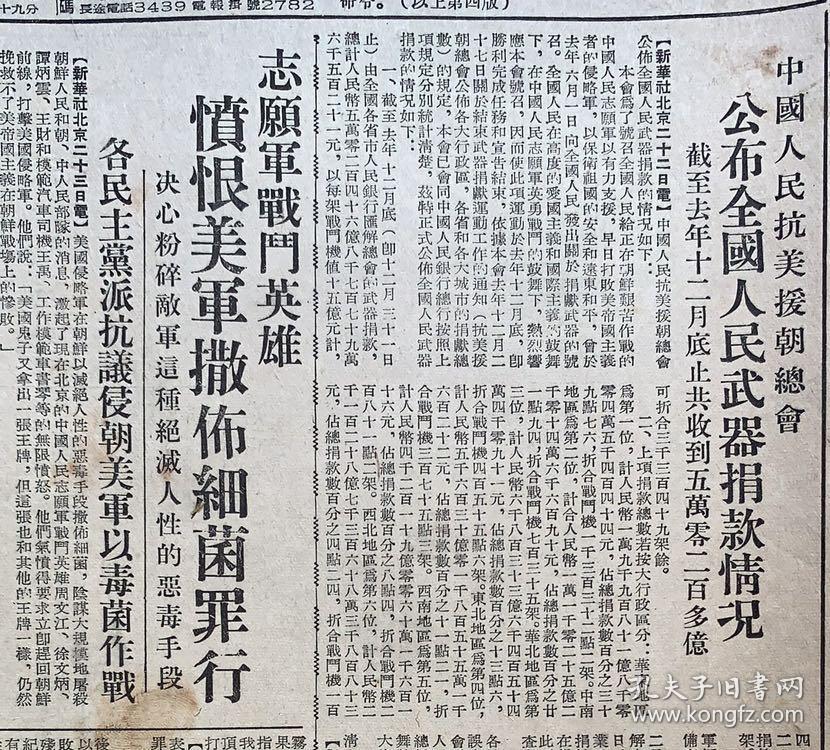 十九分
碼 長途電話3439 電報掛號2782
命令。(以上第四版)
中國人民抗美援朝總會
公布全國人民武器捐款情況
截至去年十二月底止共收到五萬零二百多億
【新華社北京二十二日電】中國人民抗美援朝總會
公佈全國人民武器捐款的情況如下：
本會爲了號召全國人民給正在朝鮮艱苦作戰的
中國人民志願軍以有力支援，早日打敗美帝國主義
者的侵略軍，以保衛祖國的安全和遠東和平，曾於
去年六月一日向全國人民發出關於捐獻武器的號
召。全國人民在高度的愛國主義和國際主義的鼓舞
下，在中國人民志願軍英勇戰鬥的鼓舞下，熱烈響
應本會號召，因而使此項運動於去年十二月底，卽
勝利完成任務和宣告結束。依據本會去年十二月二
十七日關於結束武器捐獻運動工作的通知（抗美援
朝總會公佈各大行政區，各省和各大城市的捐獻總
數）的規定，本會已會同中國人民銀行總行按照上
項規定分別統計清楚，茲特正式公佈全國人民武器
捐款的情況如下：
一、截至去年十二月底（卽十二月三十一日
止）由全國各省市人民銀行匯解總會的武器捐款，
總計人民幣五萬零二百四十六億八千七百七十九萬
六千五百二十一元，以每架戰鬥機値十五億元計，
可折合三千三百四十九架餘。
二、上項捐款總數若按大行政區分：華東地區
爲第一位，計人民幣一萬九千九百八十一億八千零
零四萬五千四百四十四元，佔總捐款數百分之三十
九點七六，折合戰鬥機一千三百三十二點一二架。中南
地區爲第二位，計合人民幣一萬一千零二十五億二
千零四萬六千六百九十元，佔總捐款數百分之二十
一點九四，折合戰鬥機七百三十五架。華北地區爲第
三位，計人民幣六千八百三十三億六千四百五十四
萬四千零九十一元，佔總捐款數百分之十三點六，
折合戰鬥機四百五十五點六架。東北地區爲第四位，
計人民幣五千六百三十億零一千八百五十五萬一千
六百二十二元，佔總捐款數百分之十一點二，折
合戰鬥機三百七十五點三架。西南地區爲第五位，
計人民幣四千二百一十九億零零六十萬一千四百六
十六元，佔總捐款數百分之八點四，折合戰鬥機二
百八十一點二架。西北地區爲第六位，計人民幣二
千一百二十八億七千三百六十八萬三千八百八十
元，佔總捐款數百分之四點二四，折合戰鬥機一百
志願軍戰鬥英雄
憤恨美軍撒佈細菌罪行
決心粉碎敵軍這種絕滅人性的惡毒手段
各民主黨派抗議侵朝美軍以毒菌作戰
【新華社北京二十三日電】美國侵略軍在朝鮮以滅絕人性的惡毒手段撒佈細菌，陰謀大規模地屠殺
朝鮮人民和朝、中人民部隊的消息，激起了現在北京的中國人民志願軍戰鬥英雄周文江、徐文炳、
譚炳雲、王財和模範汽車司機王萬、工作模範軍書零等的無限憤怒。他們氣憤得要求立卽趕回朝鮮
前線，打擊美國侵略軍。他們說：「美國鬼子又拿出一張王牌，但這張也和其他的王牌一樣，仍然
挽救不了美帝國主義在朝鮮戰場上的慘敗。」
孔夫子旧书网